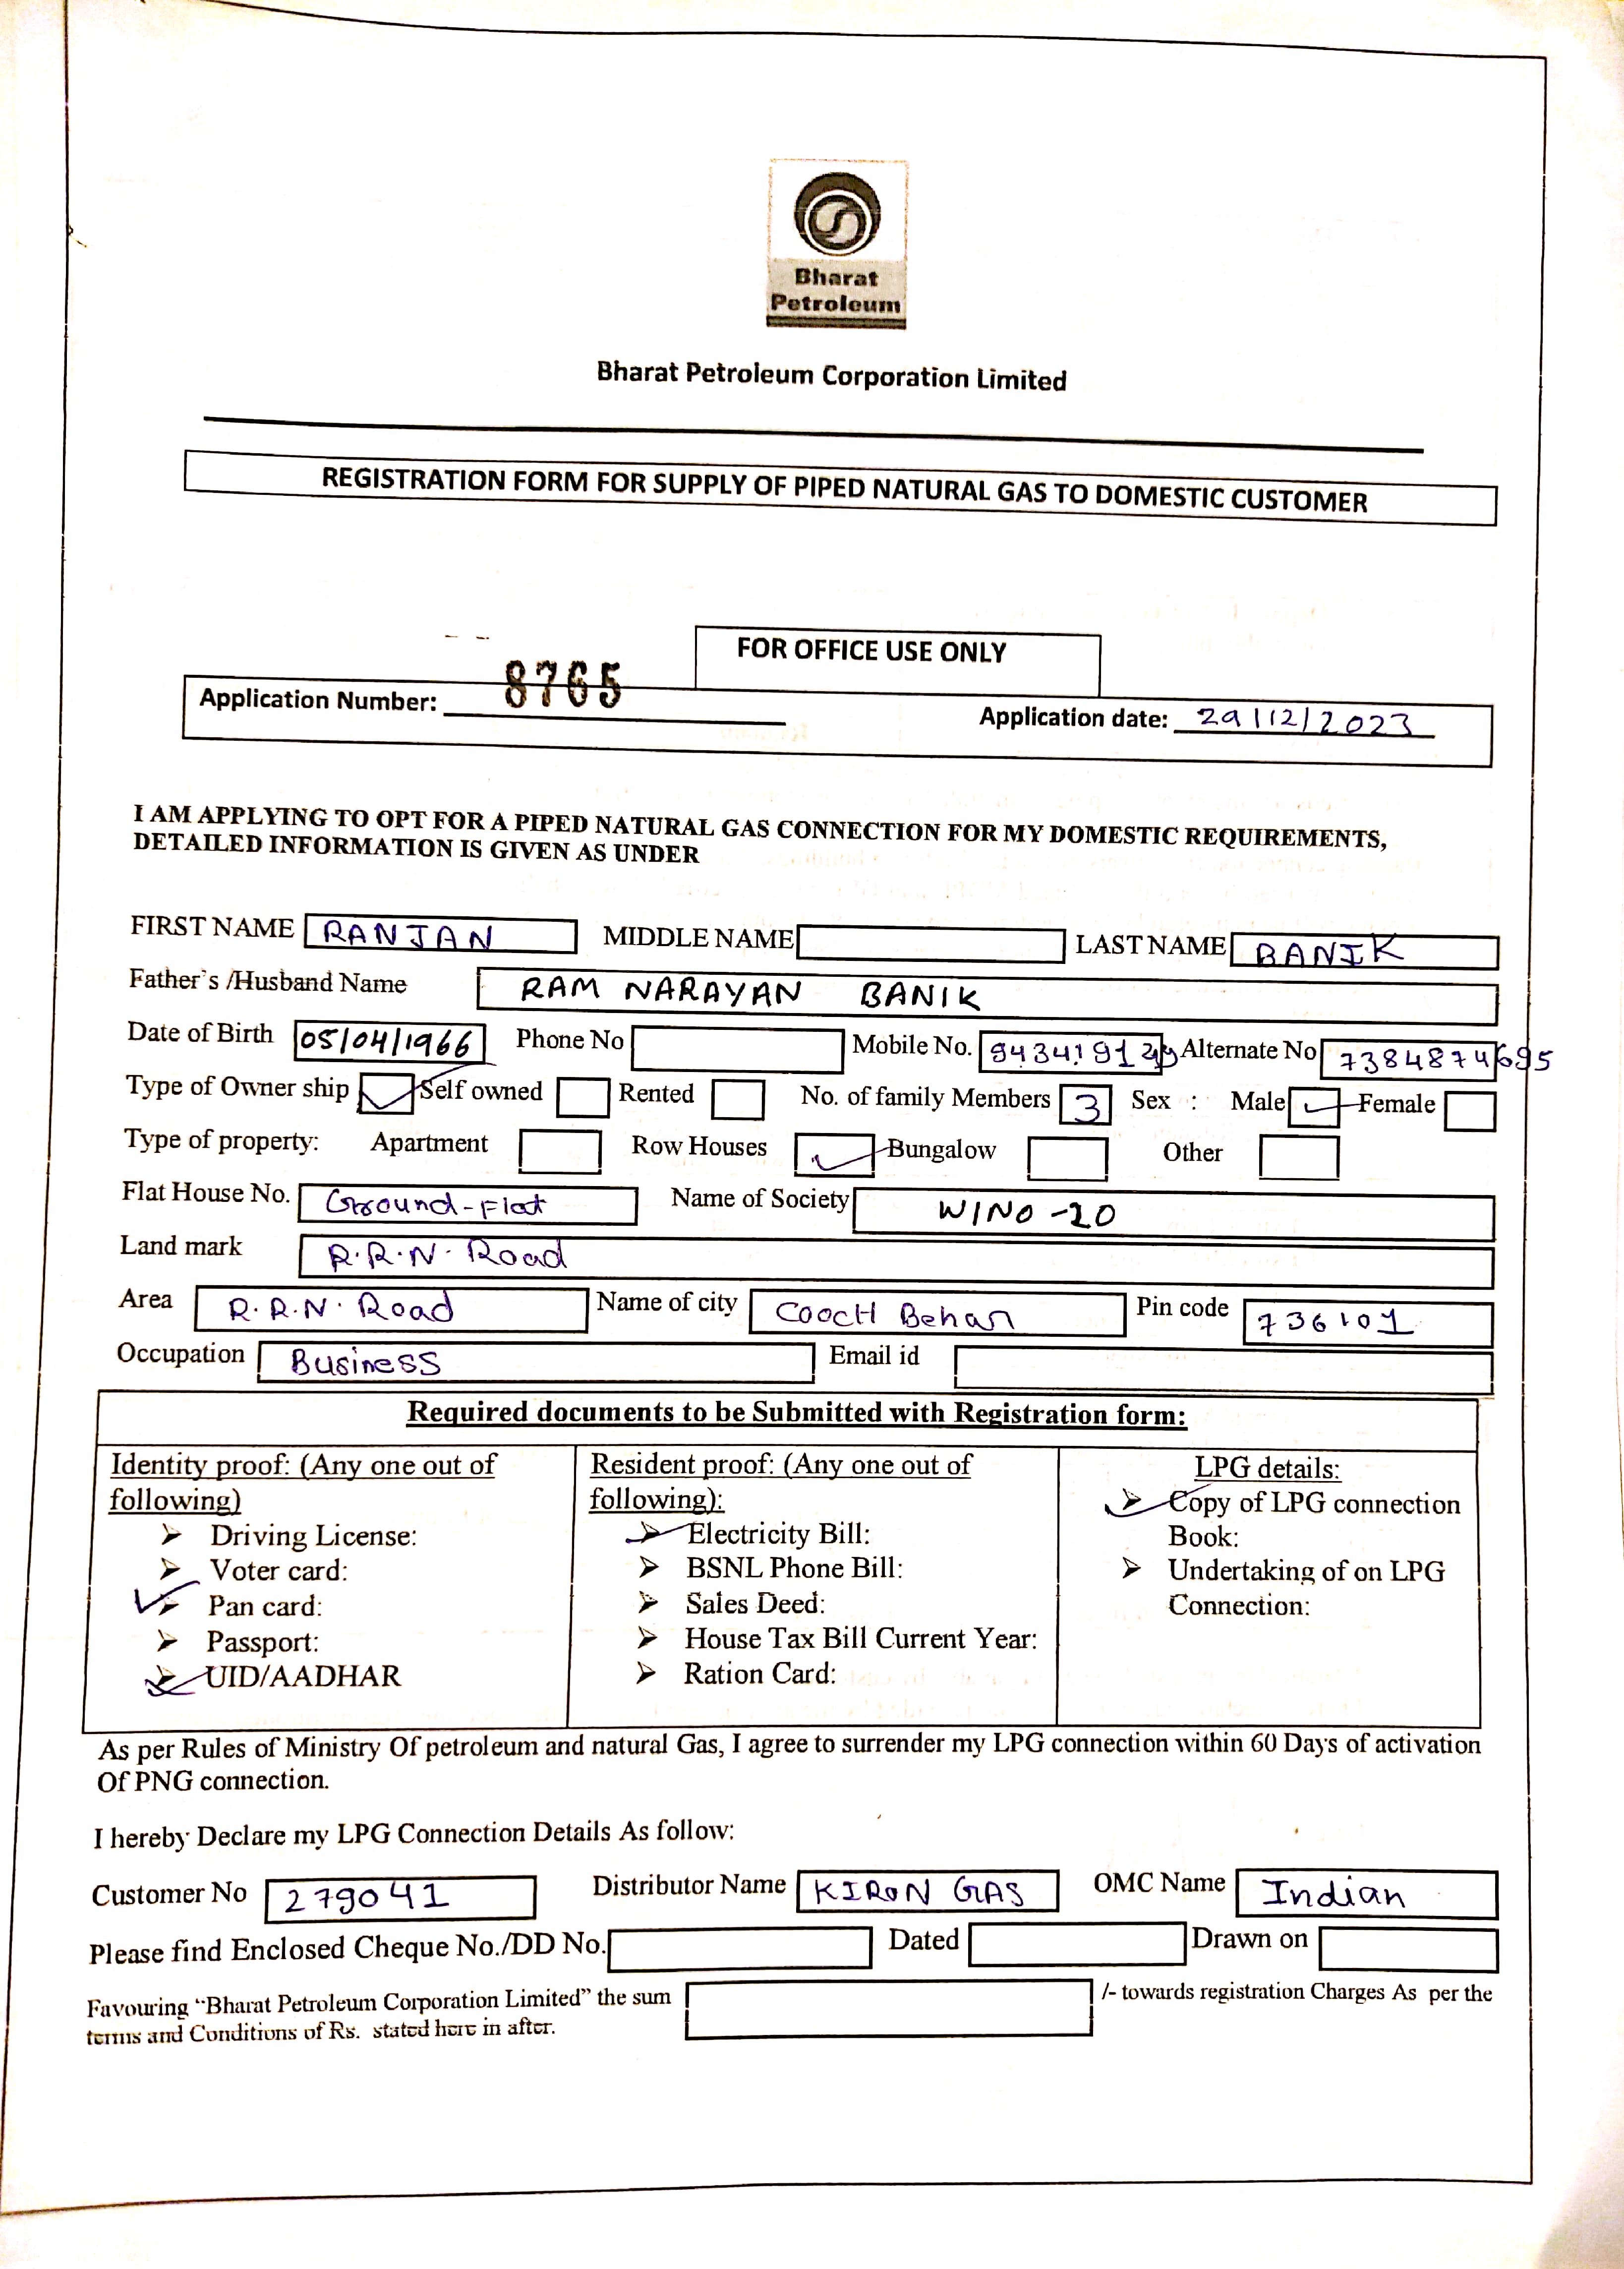 Bharat
Petroleum
Bharat Petroleum Corporation Limited
REGISTRATION FORM FOR SUPPLY OF PIPED NATURAL GAS TO DOMESTIC CUSTOMER
FOR OFFICE USE ONLY
Application Number: 8765 Application date: 29/12/2023
I AM APPLYING TO OPT FOR A PIPED NATURAL GAS CONNECTION FOR MY DOMESTIC REQUIREMENTS,
DETAILED INFORMATION IS GIVEN AS UNDER
FIRST NAME RANJAN MIDDLE NAME LAST NAME BANIK
Father's /Husband Name RAM NARAYAN BANIK
Date of Birth 05/04/1966 Phone No Mobile No. Alternate No 7384874695
Type of Owner ship Self owned Rented No. of family Members 3 Sex : Male Female
Type of property: Apartment Row Houses Bungalow Other
Flat House No. Ground-Flat Name of Society WINO-20
Land mark R.R.N. Road
Area R.R.N. Road Name of city COOCH Behar Pin code 736101
Occupation Business Email id
Required documents to be Submitted with Registration form:
Identity proof: (Any one out of
following)
Driving License:
Voter card:
Pan card:
Passport:
UID/AADHAR
Resident proof: (Any one out of
following):
Electricity Bill:
BSNL Phone Bill:
Sales Deed:
House Tax Bill Current Year:
Ration Card:
LPG details:
Copy of LPG connection
Book:
Undertaking of on LPG
Connection:
As per Rules of Ministry Of petroleum and natural Gas, I agree to surrender my LPG connection within 60 Days of activation
Of PNG connection.
I hereby Declare my LPG Connection Details As follow:
Customer No 279041 Distributor Name KIRON GAS OMC Name Indian
Please find Enclosed Cheque No./DD No. Dated Drawn on
Favouring "Bharat Petroleum Corporation Limited" the sum /- towards registration Charges As per the
terms and Conditions of Rs. stated here in after.